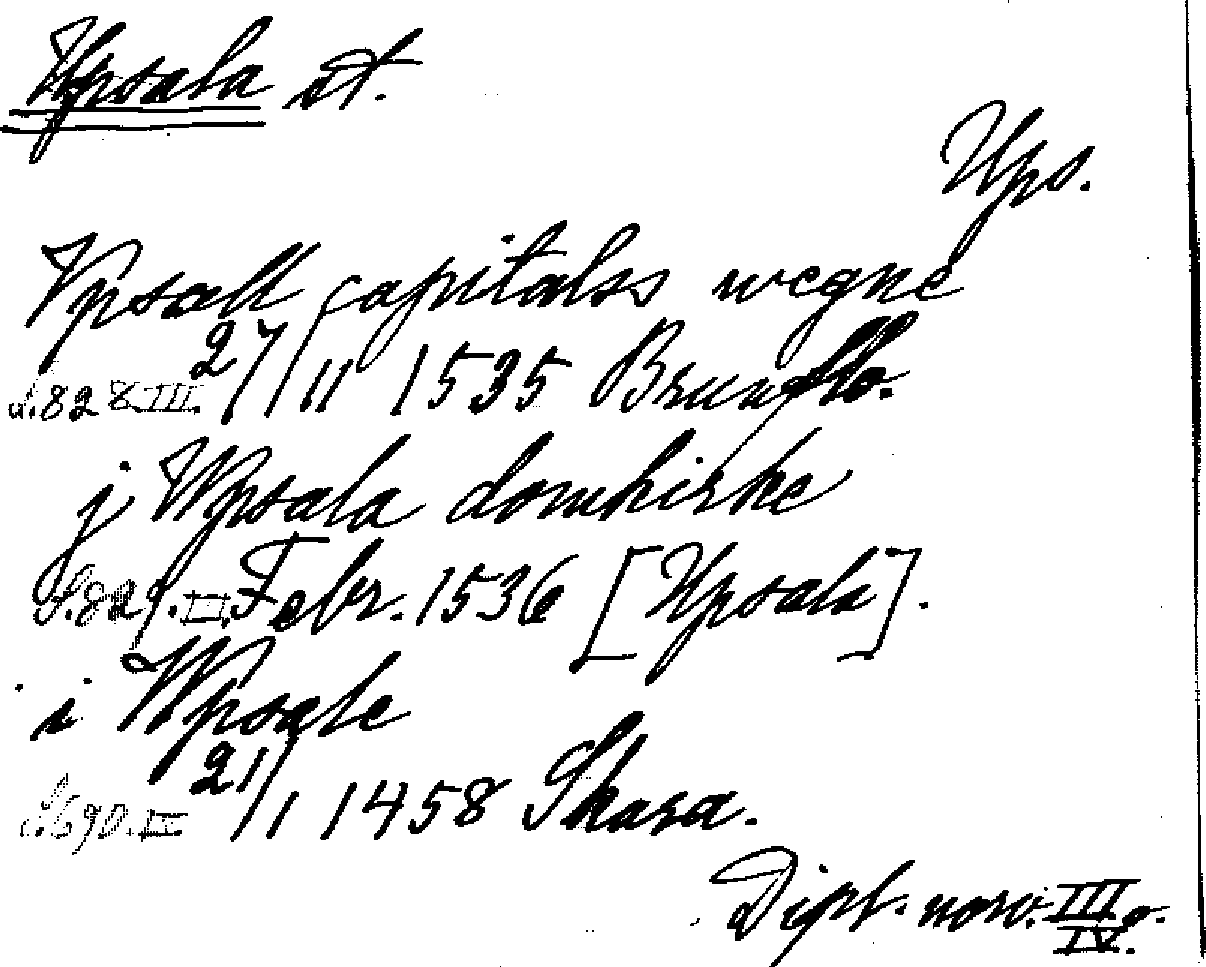 Upsala st.
Ups.
Vpsall capitalss wegne
S. 828. III. 27/11 1535 Brunflo.
j Wpsala domkirke
S. 829. III. Febr. 1536 [Upsala].
i Wpsale
S. 690. IV 21/1 1458 Skara.
Dipl. norv. III o. IV.